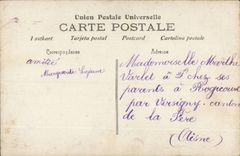 Union Postale Universelle
CARTE POSTALE
Tarjeta postal
Postcard
Cartolina postale
Correspondance
Adresse
amitié
Marguerite
Mademoiselle Marthe
Varlet à chez ses
parents à Rogécourt
par Versigny canton
de la Fère
(Aisne)